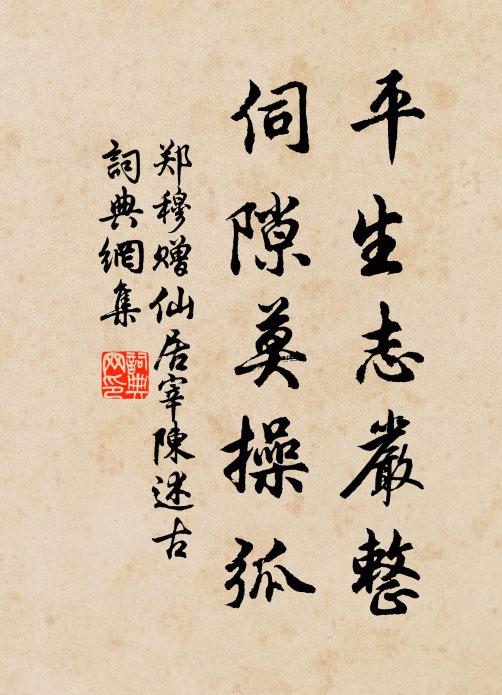 平生志嚴整
伺隙莫操弧
郑穆赠仙居宰陳述古
詞典網集
詞典网印